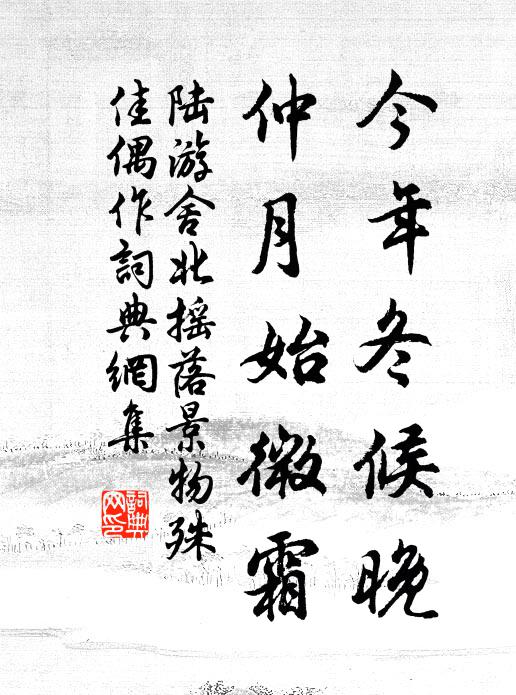 今年冬候晚
仲月始微霜
陆游舍北摇落景物殊
佳偶作詞典網集
詞典
网印